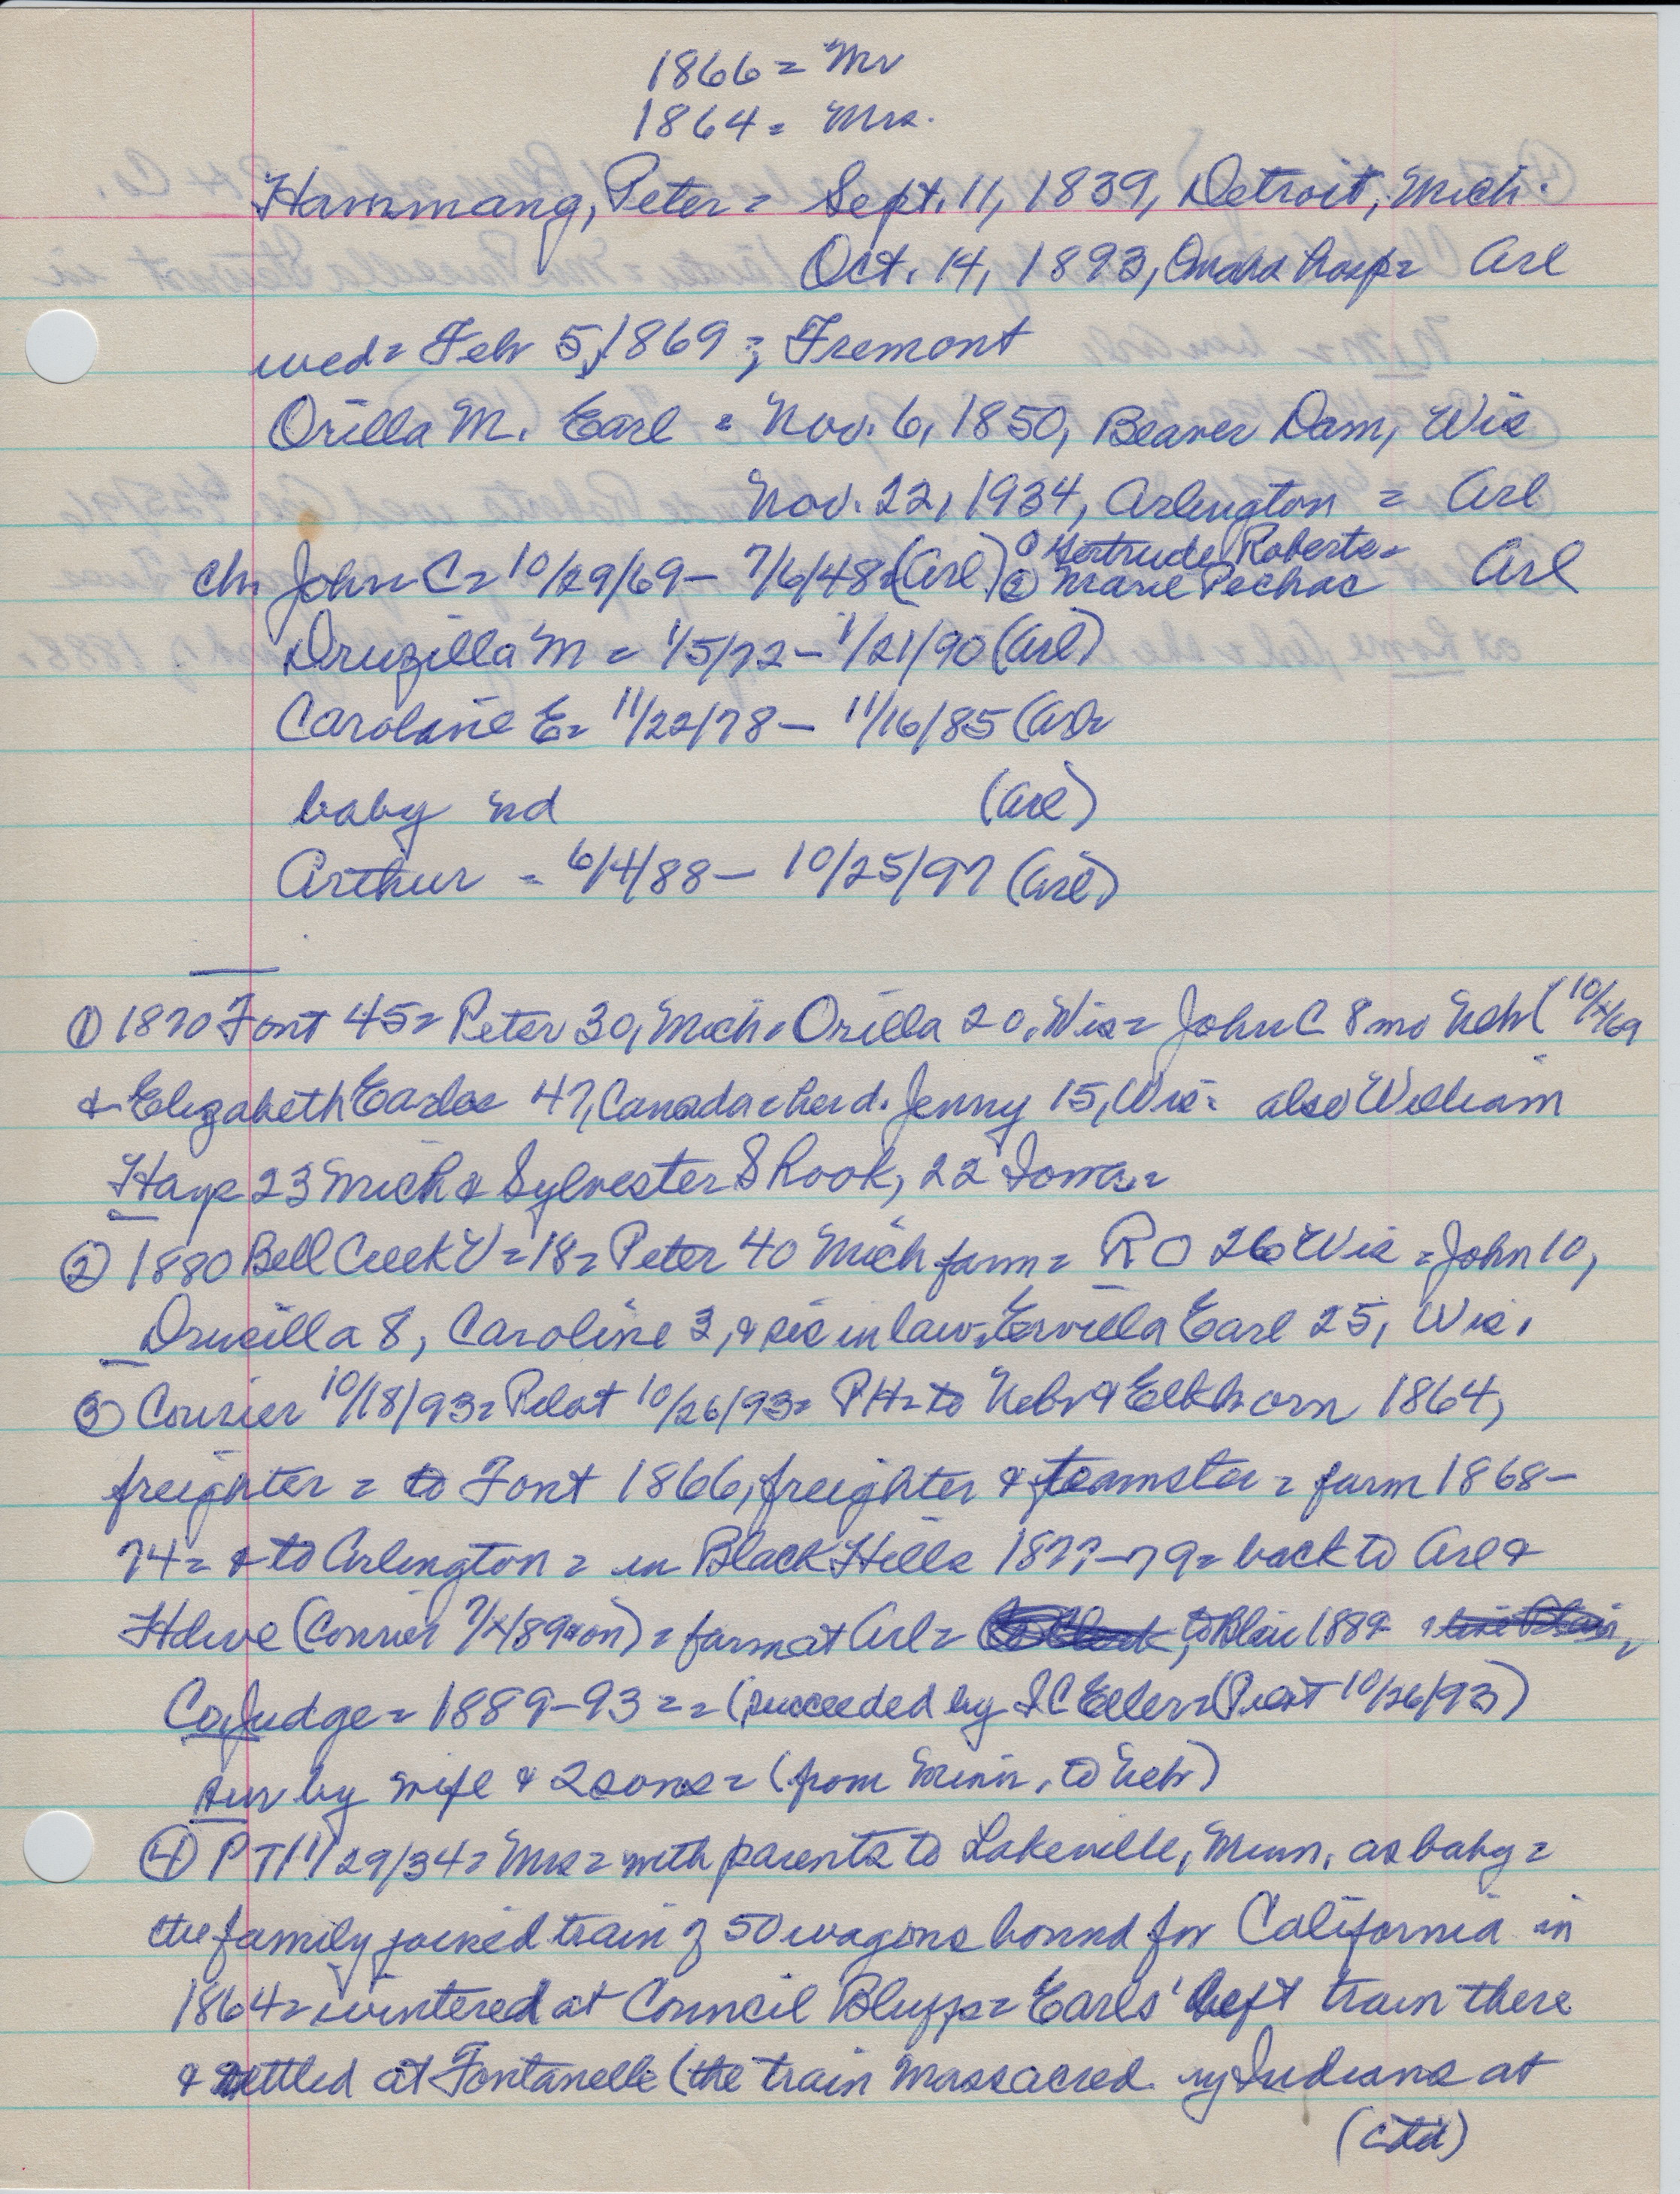 1866 = Mr
1864 = Mrs.
Hammang, Peter = Sept. 11, 1839, Detroit, Mich.
Oct. 14, 1893, Omaha hosp = Arl
wed = Feb 5, 1869 = Fremont
Orilla M. Earl = Nov. 6, 1850, Beaver Dam, Wis
Nov. 22, 1934, Arlington = Arl
ch. John C = 10/29/69 - 7/6/48 = (Arl) ① Gertrude Roberts = ② Marie Pechac Arl
Druzilla M = 1/5/72 - 1/21/90 (Arl)
Caroline E = 11/22/78 - 11/16/85 (Arl
baby nd (Arl)
Arthur = 6/4/88 - 10/25/97 (Arl)
① 1870 Font 45 = Peter 30, Mich = Orilla 20, Wis = John C 8 mo Neb ( 10/x/69
& Elizabeth Earl 47, Canada = her d. Jenny 15, Wis = also William
Hays 23 Mich & Sylvester Shook, 22 Iowa =
② 1880 Bell Creek V = 18 = Peter 40 Mich farm = RO 26 Wis = John 10,
Drusilla 8, Caroline 3, & sis in law, Ervilla Earl 25, Wis.
③ Courier 10/18/93 = Pilot 10/26/93 = PH = to Neb & Elkhorn 1864,
freighter = to Font 1866, freighter & teamster = farm 1868-
74 = & to Arlington = in Black Hills 1877-79 = back to Arl &
Hdwe (Courier 7/x/89 on) = farm at Arl = to Blair 1889
Co Judge = 1889-93 = = (succeeded by I C Eller = Pilot 10/26/93)
sur by wife & 2 sons = (from Minn. to Neb)
④ PT 11/29/34 = Mrs = with parents to Lakeville, Minn. as baby =
the family joined train of 50 wagons bound for California in
1864 = wintered at Council Bluffs = Earls' left train there
& settled at Fontanelle (the train massacred by Indians at
(ctd)